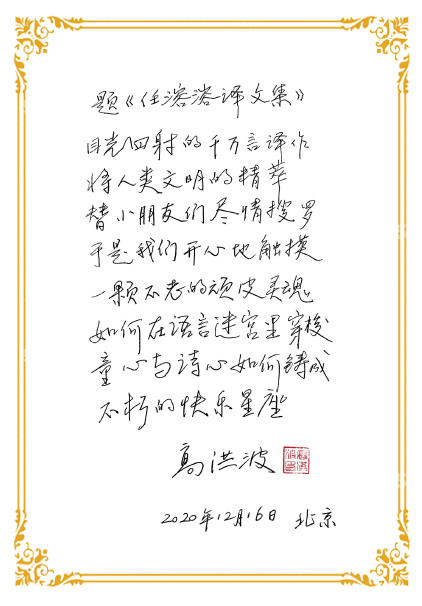 题《任溶溶译文集》
目光四射的千万言译作
将人类文明的精萃
替小朋友们尽情搜罗
于是我们开心地触摸
一颗不老的顽皮灵魂
如何在语言迷宫里穿梭
童心与诗心如何铸成
不朽的快乐星座
高洪波
2020年12月16日 北京